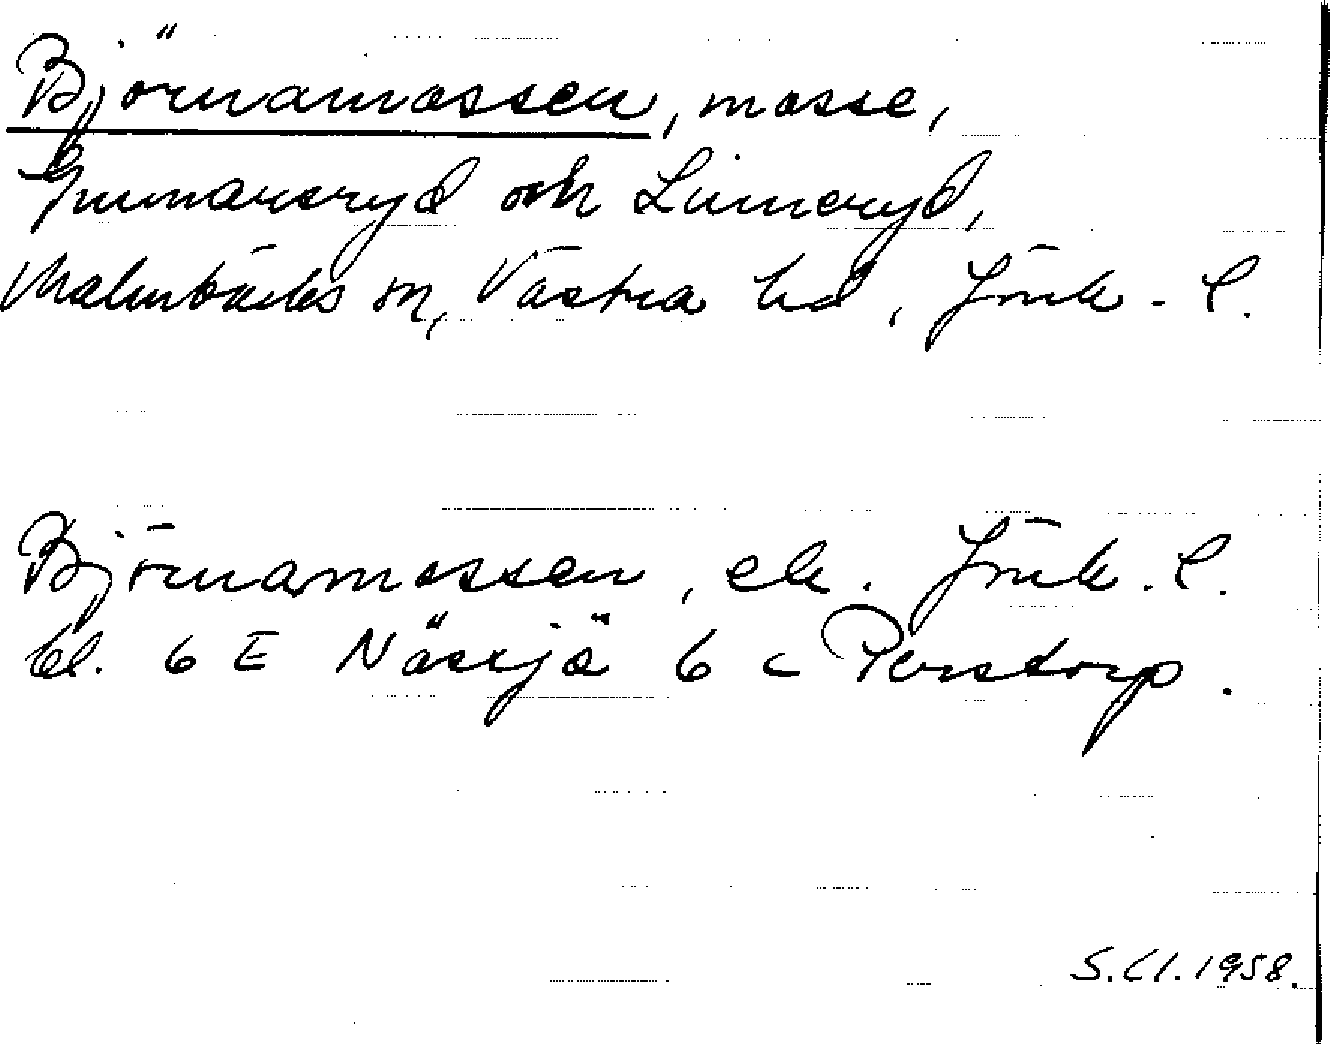 Björnamossen, mosse,
Gunnarsryd och Limeryd,
Malmbäcks sn, Västra hd, Jönk. l.
Björnamossen, ek. Jönk. l.
bl. 6 E Nässjö 6 c Perstorp.
S.Cl. 1958.